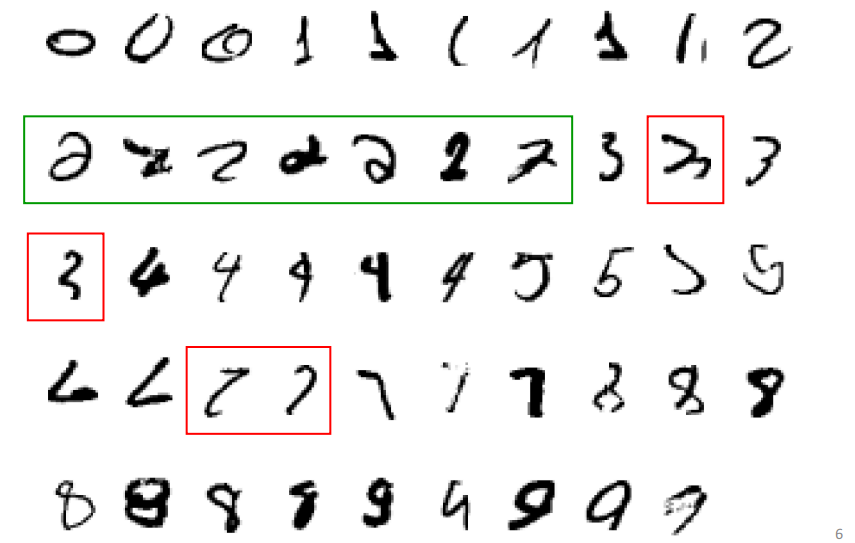 0 0 0 1 1 1 1 1 1 2
2 2 2 2 2 2 2 3 3 3
3 4 4 4 4 4 5 5 5 5
6 6 7 7 7 7 7 8 8 8
8 8 8 8 9 9 9 9 9
6